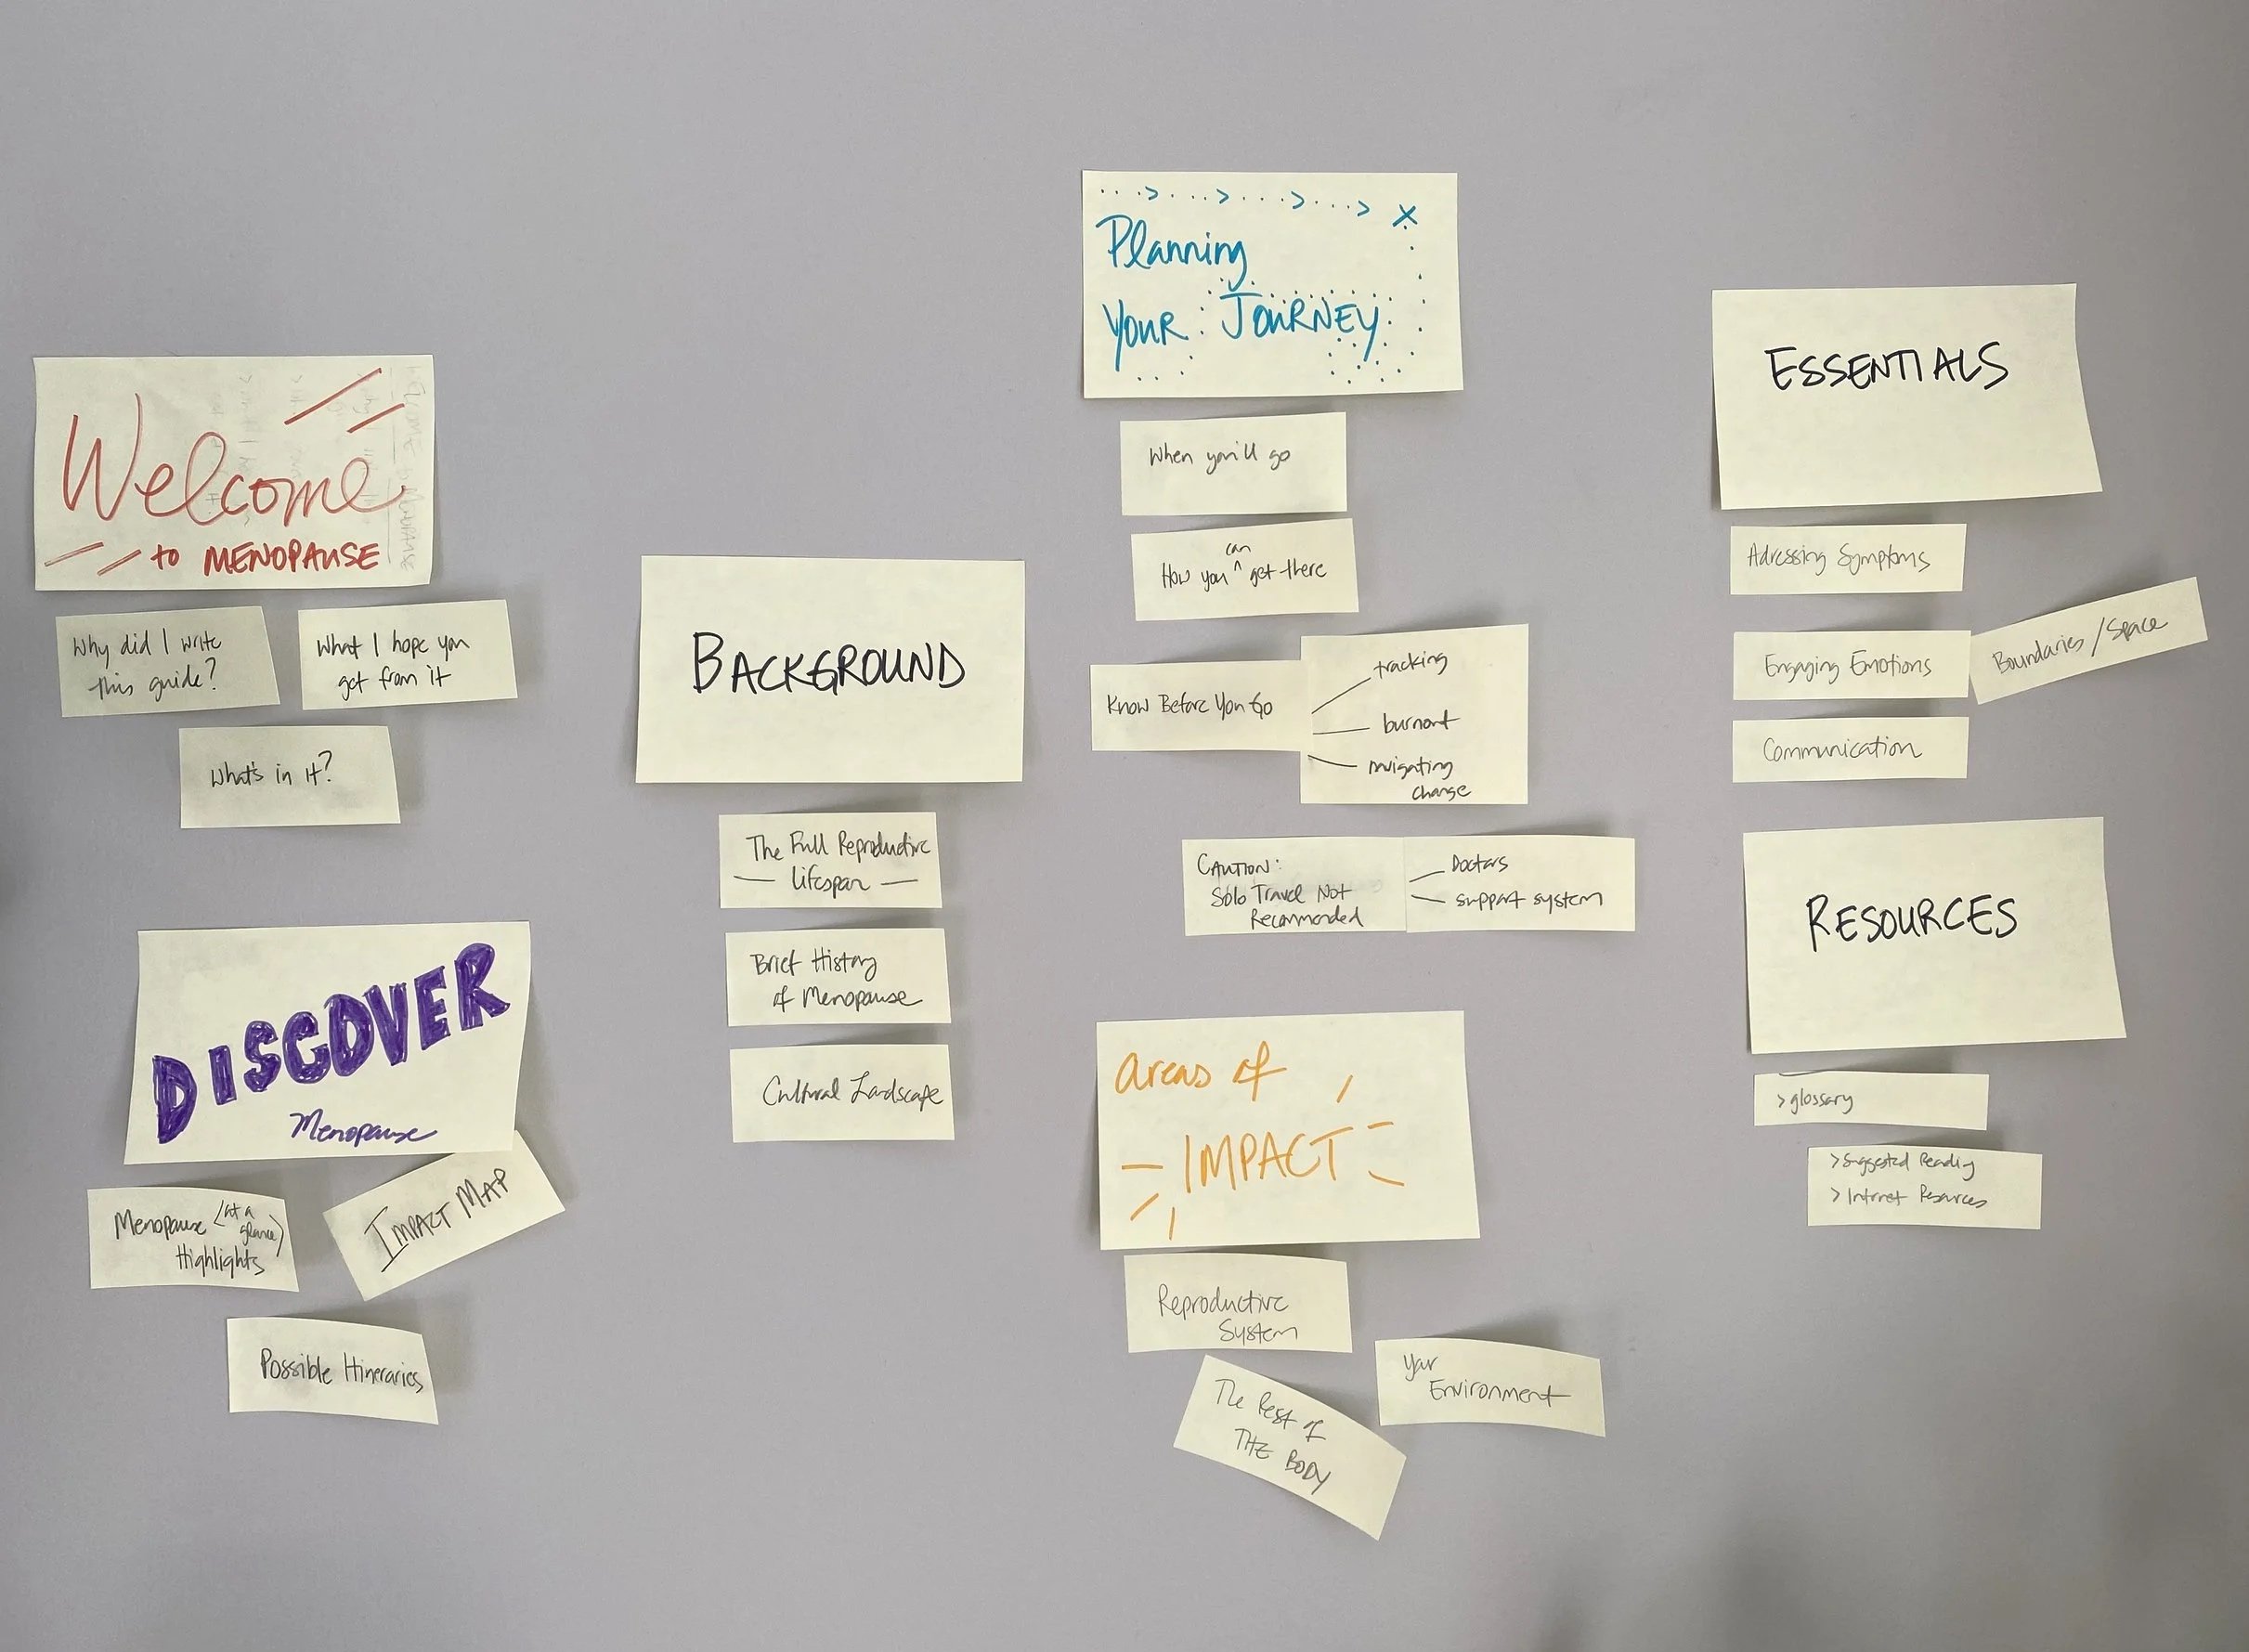 Welcome
to MENOPAUSE
Why did I write
this guide?
What I hope you
get from it
What's in it?
DISCOVER
Menopause
Menopause (at a
glance)
Highlights
IMPACT MAP
Possible Itineraries
BACKGROUND
The Full Reproductive
Lifespan
Brief History
of Menopause
Cultural Landscape
Planning
YOUR JOURNEY
When you'll go
can
How you ^ get there
Know Before You Go
tracking
burnout
navigating
change
CAUTION:
Solo Travel Not
Recommended
Doctors
support system
areas of
IMPACT
Reproductive
System
The Rest of
THE BODY
Your
Environment
ESSENTIALS
Adressing Symptoms
Engaging Emotions
Boundaries / Space
Communication
RESOURCES
> glossary
> Suggested Reading
> Internet Resources